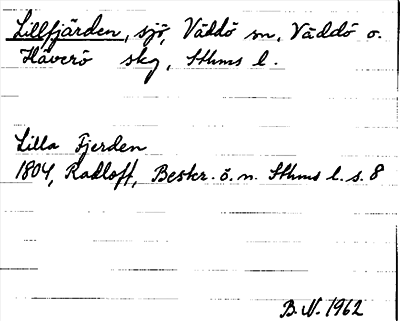 Lillfjärden, sjö, Väddö sn, Väddö o.
Häverö skg, Sthms l.
Lilla Fjerden
1804, Radloff, Beskr. ö. n. Sthms l. s. 8
B.N. 1962